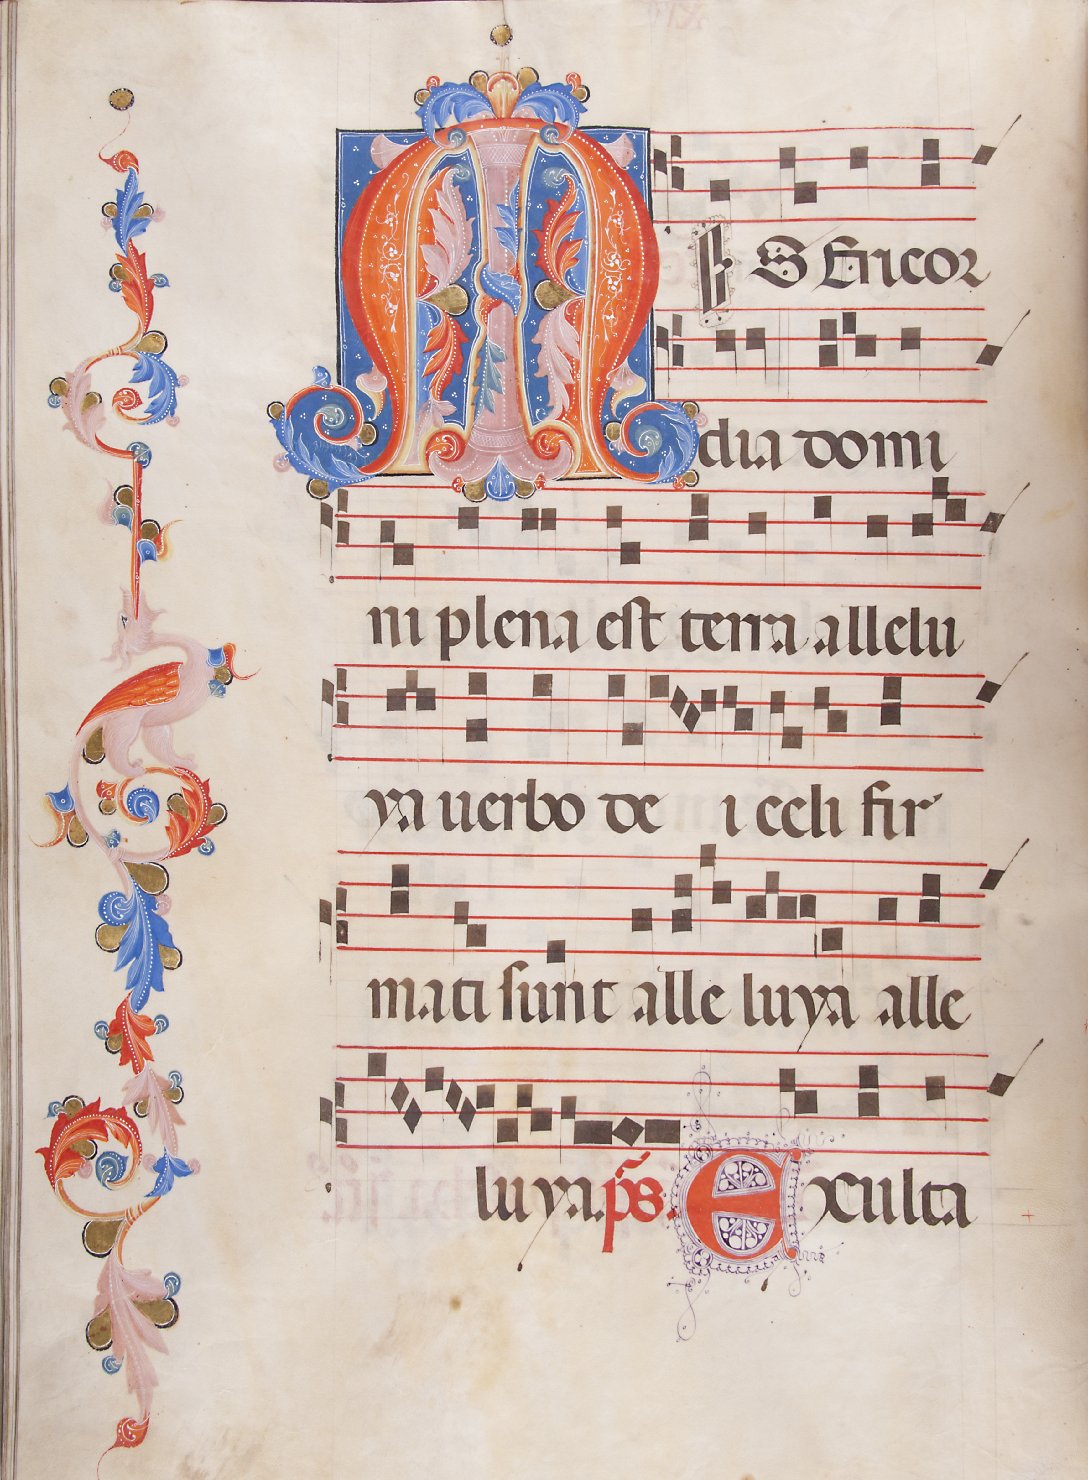 MISERICOR
dia domi
ni plena est terra allelu
ya uerbo de i celi fir
mati sunt alle luya alle
luya. ps. Exculta